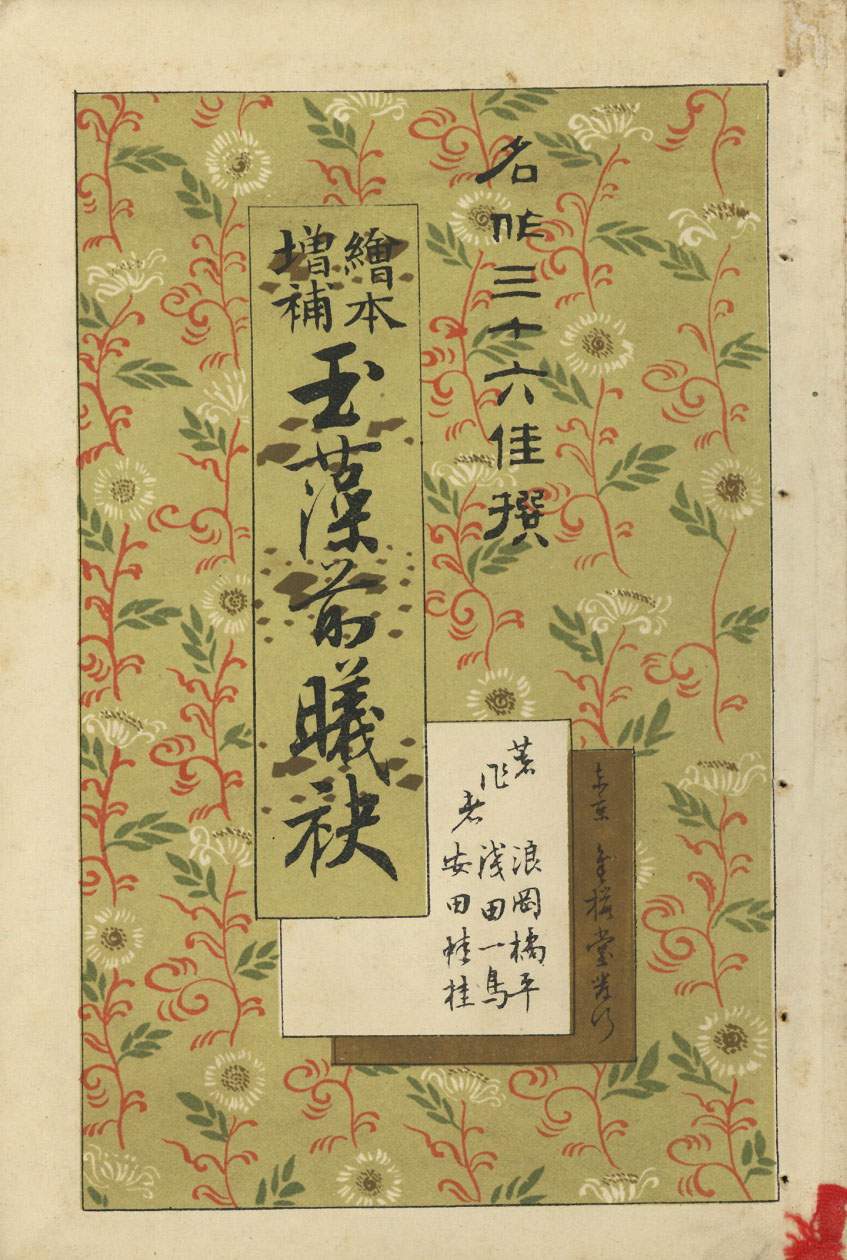 名作三十六佳撰
繪本
増補
玉藻前曦袂
著作者
浪岡橘平
浅田一鳥
安田蛙桂
東京 金桜堂発行